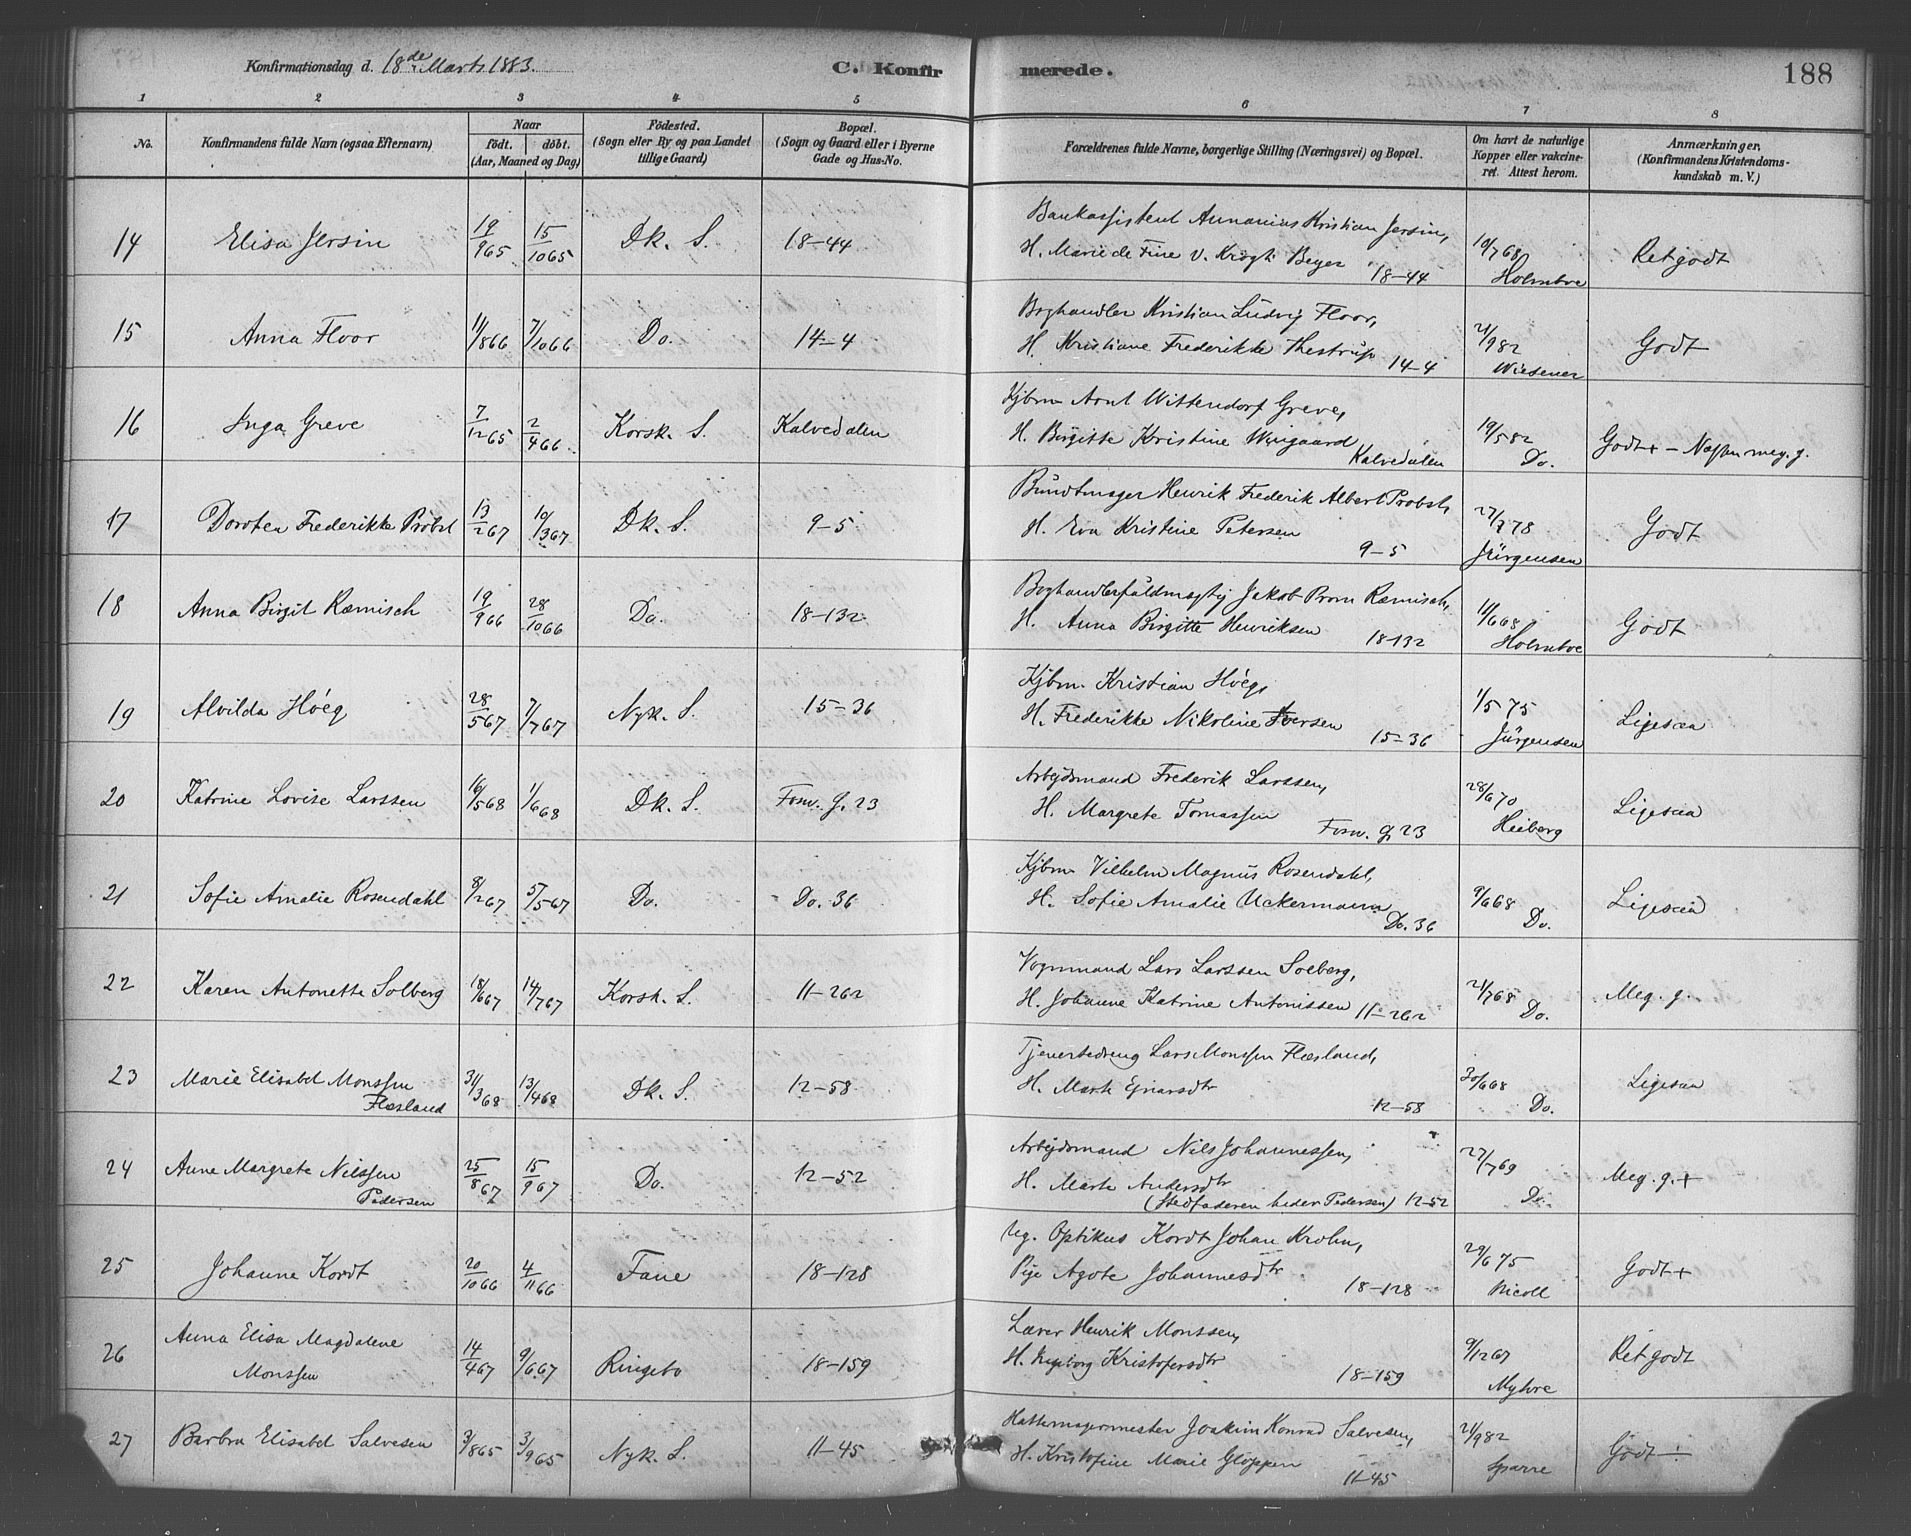 Konfirmationsdag d. 18de Marts 1883. C. Konfirmerede. 188
1 2 3 4 5 6 7 8
No. Konfirmandens fulde Navn (ogsaa Efternavn) Naar födt. döbt. (Aar, Maaned og Dag) Födested. (Sogn eller By og paa Landet tillige Gaard) Bopæl. (Sogn og Gaard eller i Byerne Gade og Hus-No. Forældrenes fulde Navne, borgerlige Stilling (Næringsvei) og Bopæl. Om havt de naturlige Kopper eller vakcineret. Attest herom. Anmærkninger, (Konfirmandens Kristendomskundskab m. V.)
14 Elisa Jersin 19/9 65 15/10 65 Dk. S. 18-44 Bankassistent Annanias Kristian Jersin,
H. Marie de Fine v. Krogh Beyer 18-44 10/7 68 Holmboe Ret godt
15 Anna Floor 11/8 66 7/10 66 Do. 14-4 Boghandler Kristian Ludvig Floor,
H. Kristiane Frederikke Thestrup 14-4 21/9 82 Wiesener Godt
16 Inga Greve 7/12 65 2/4 66 Korsk. S. Kalvedalen Kjbm. Arnt Wittendorf Greve,
H. Birgitte Kristine Wiingaard Kalvedalen 19/5 82 Do. Godt + - Næsten meg. g.
17 Dorotea Frederikke Pröbst 13/2 67 10/3 67 Dk. S. 9-5 Bundtmager Henrik Frederik Albert Probst,
H. Eva Kristine Petersen 9-5 27/7 78 Jürgensen Godt
18 Anna Birgit Ræmisch 19/9 66 28/10 66 Do. 18-132 Boghandlerfuldmægtig Jakob Prom Ræmisch,
H. Anna Birgitte Henriksen 18-132 11/6 68 Holmboe Godt
19 Alvilda Höeg 28/5 67 7/7 67 Nyk. S. 15-36 Kjbm. Kristian Höeg,
H. Frederikke Nikoline Iversen 15-36 1/5 75 Jürgensen Ligesaa
20 Katrine Lovise Larssen 16/5 68 1/6 68 Dk. S. Fosw. G. 23 Arbejdsmand Frederik Larssen,
H. Margrete Tomassen Fosw. G. 23 28/6 70 Heiberg Ligesaa
21 Sofie Amalie Rosendahl 8/2 67 5/5 67 Do. Do. 36 Kjbm. Vilhelm Magnus Rosendahl,
H. Sofie Amalie Uckermann Do. 36 9/6 68 Do. Ligesaa
22 Karen Antonette Solberg 18/6 67 14/7 67 Korsk. S. 11-262 Vognmand Lars Larssen Solberg,
H. Johanne Katrine Antonissen 11-262 21/7 68 Do. Meg. g.
23 Marie Elisabet Monssen
Flæsland 31/3 68 13/4 68 Dk. S. 12-58 Tjenestedreng Lars Monssen Flæsland,
H. Marte Ejnarsdtr 12-58 30/6 68 Do. Ligesaa
24 Anne Margrete Nilssen
Pedersen 25/8 67 15/9 67 Do. 12-52 Arbejdsmand Nils Johannessen,
H. Marte Andersdtr
(Stedfaderen heder Pedersen) 12-52 27/7 69 Do. Meg. g. +
25 Johanne Kordt 20/10 66 4/11 66 Fane 18-128 Ug. Optikus Kordt Johan Krohn,
Pige Agote Johannesdtr 18-128 29/6 75 Nicoll Godt +
26 Anna Elisa Magdalene
Monssen 14/4 67 9/6 67 Ringebo 18-159 Lærer Henrik Monssen,
H. Ingeborg Kristofersdtr 18-159 9/12 67 Myhre Ret godt
27 Barbra Elisabet Salvesen 3/8 65 3/9 65 Nyk. S. 11-45 Hattemagermester Joakim Konrad Salvesen,
H. Kristofine Marie Gloppen 11-45 21/9 82 Sparre Godt ÷